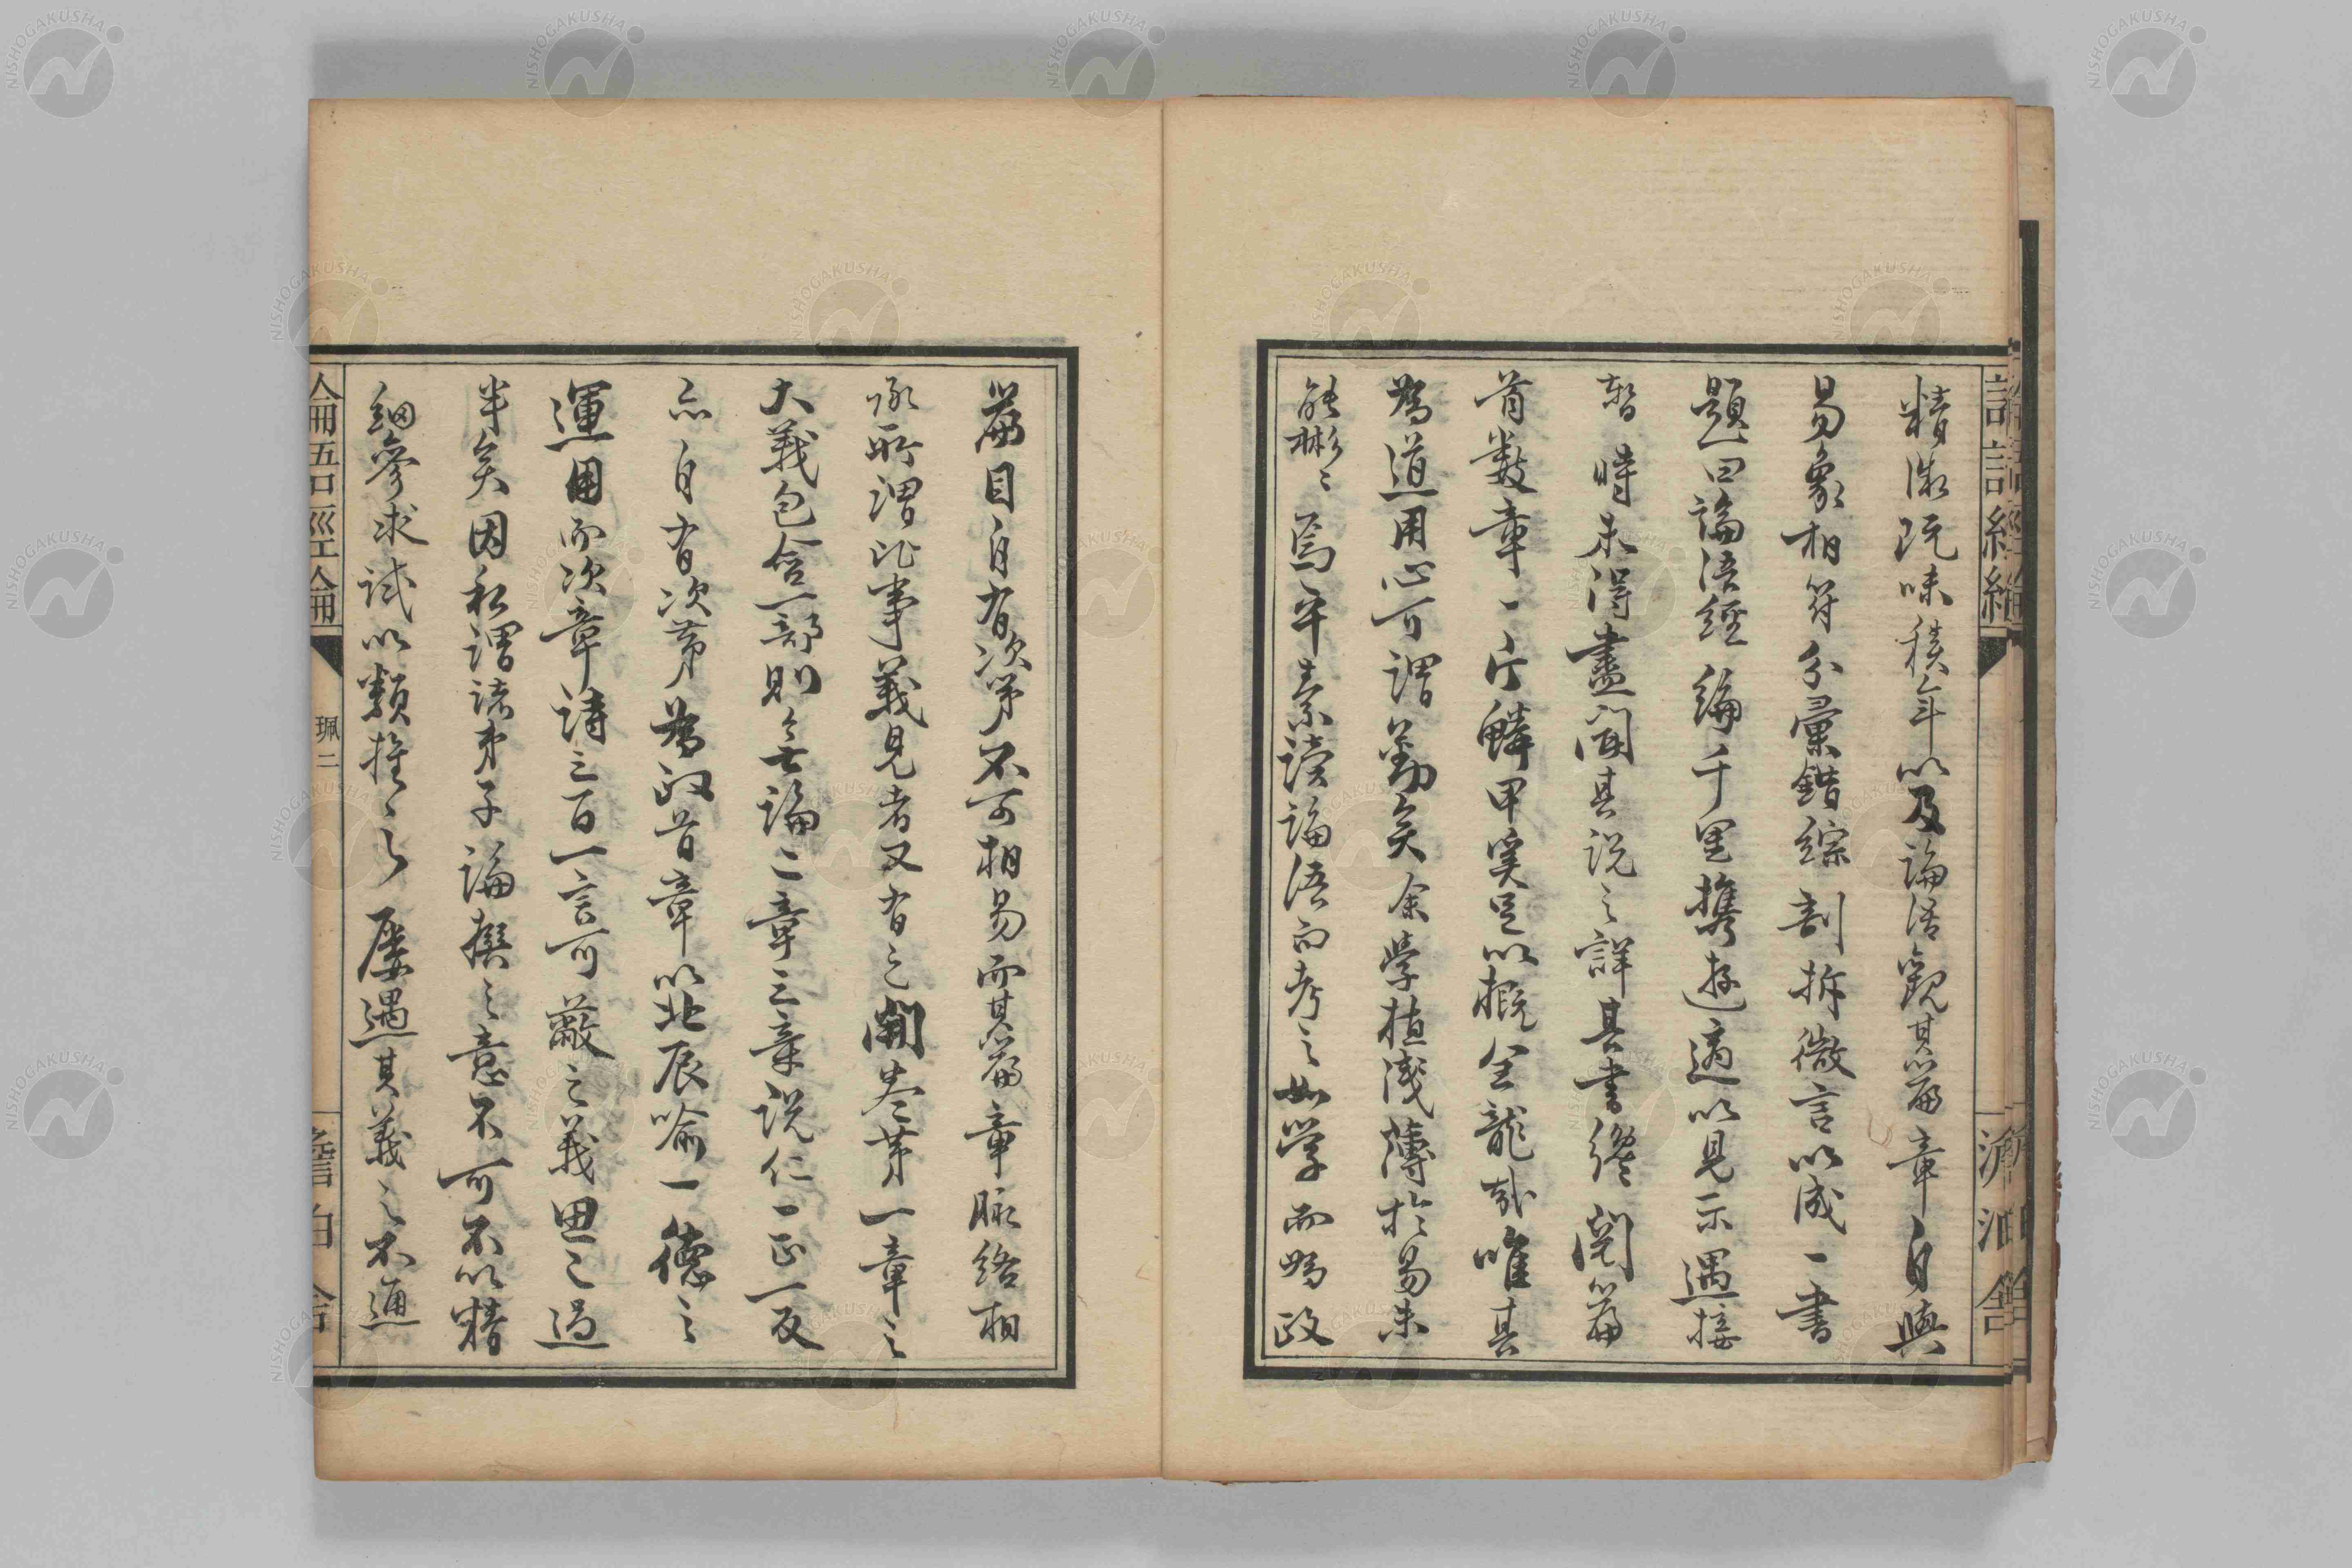 精微既味積年以及論語觀其篇章自與
易象相符分彙錯綜剖拆微言以成一書
題曰論語經綸千里携遊適以見示過接
暫時未得盡聞其説之詳其書纔閱篇
首數章一片鱗甲奚足以概全龍哉唯其
為道用心可謂勤矣余學植淺薄於易未
能彬〻焉平素讀論語而考之如學而為政
篇目自有次第不可相易而其篇章脈絡相
承所謂比事義見者又有之開卷第一章之
大義包含一部則無論二章三章説仁一正一反
亦自有次第為政首章以北辰喻一德之
運用而次章詩三百一言可蔽之義思之過
半矣因私謂諸弟子論撰之意不可不以精
細參求試以類推之屡遇其義之不通
論語經綸
珮二